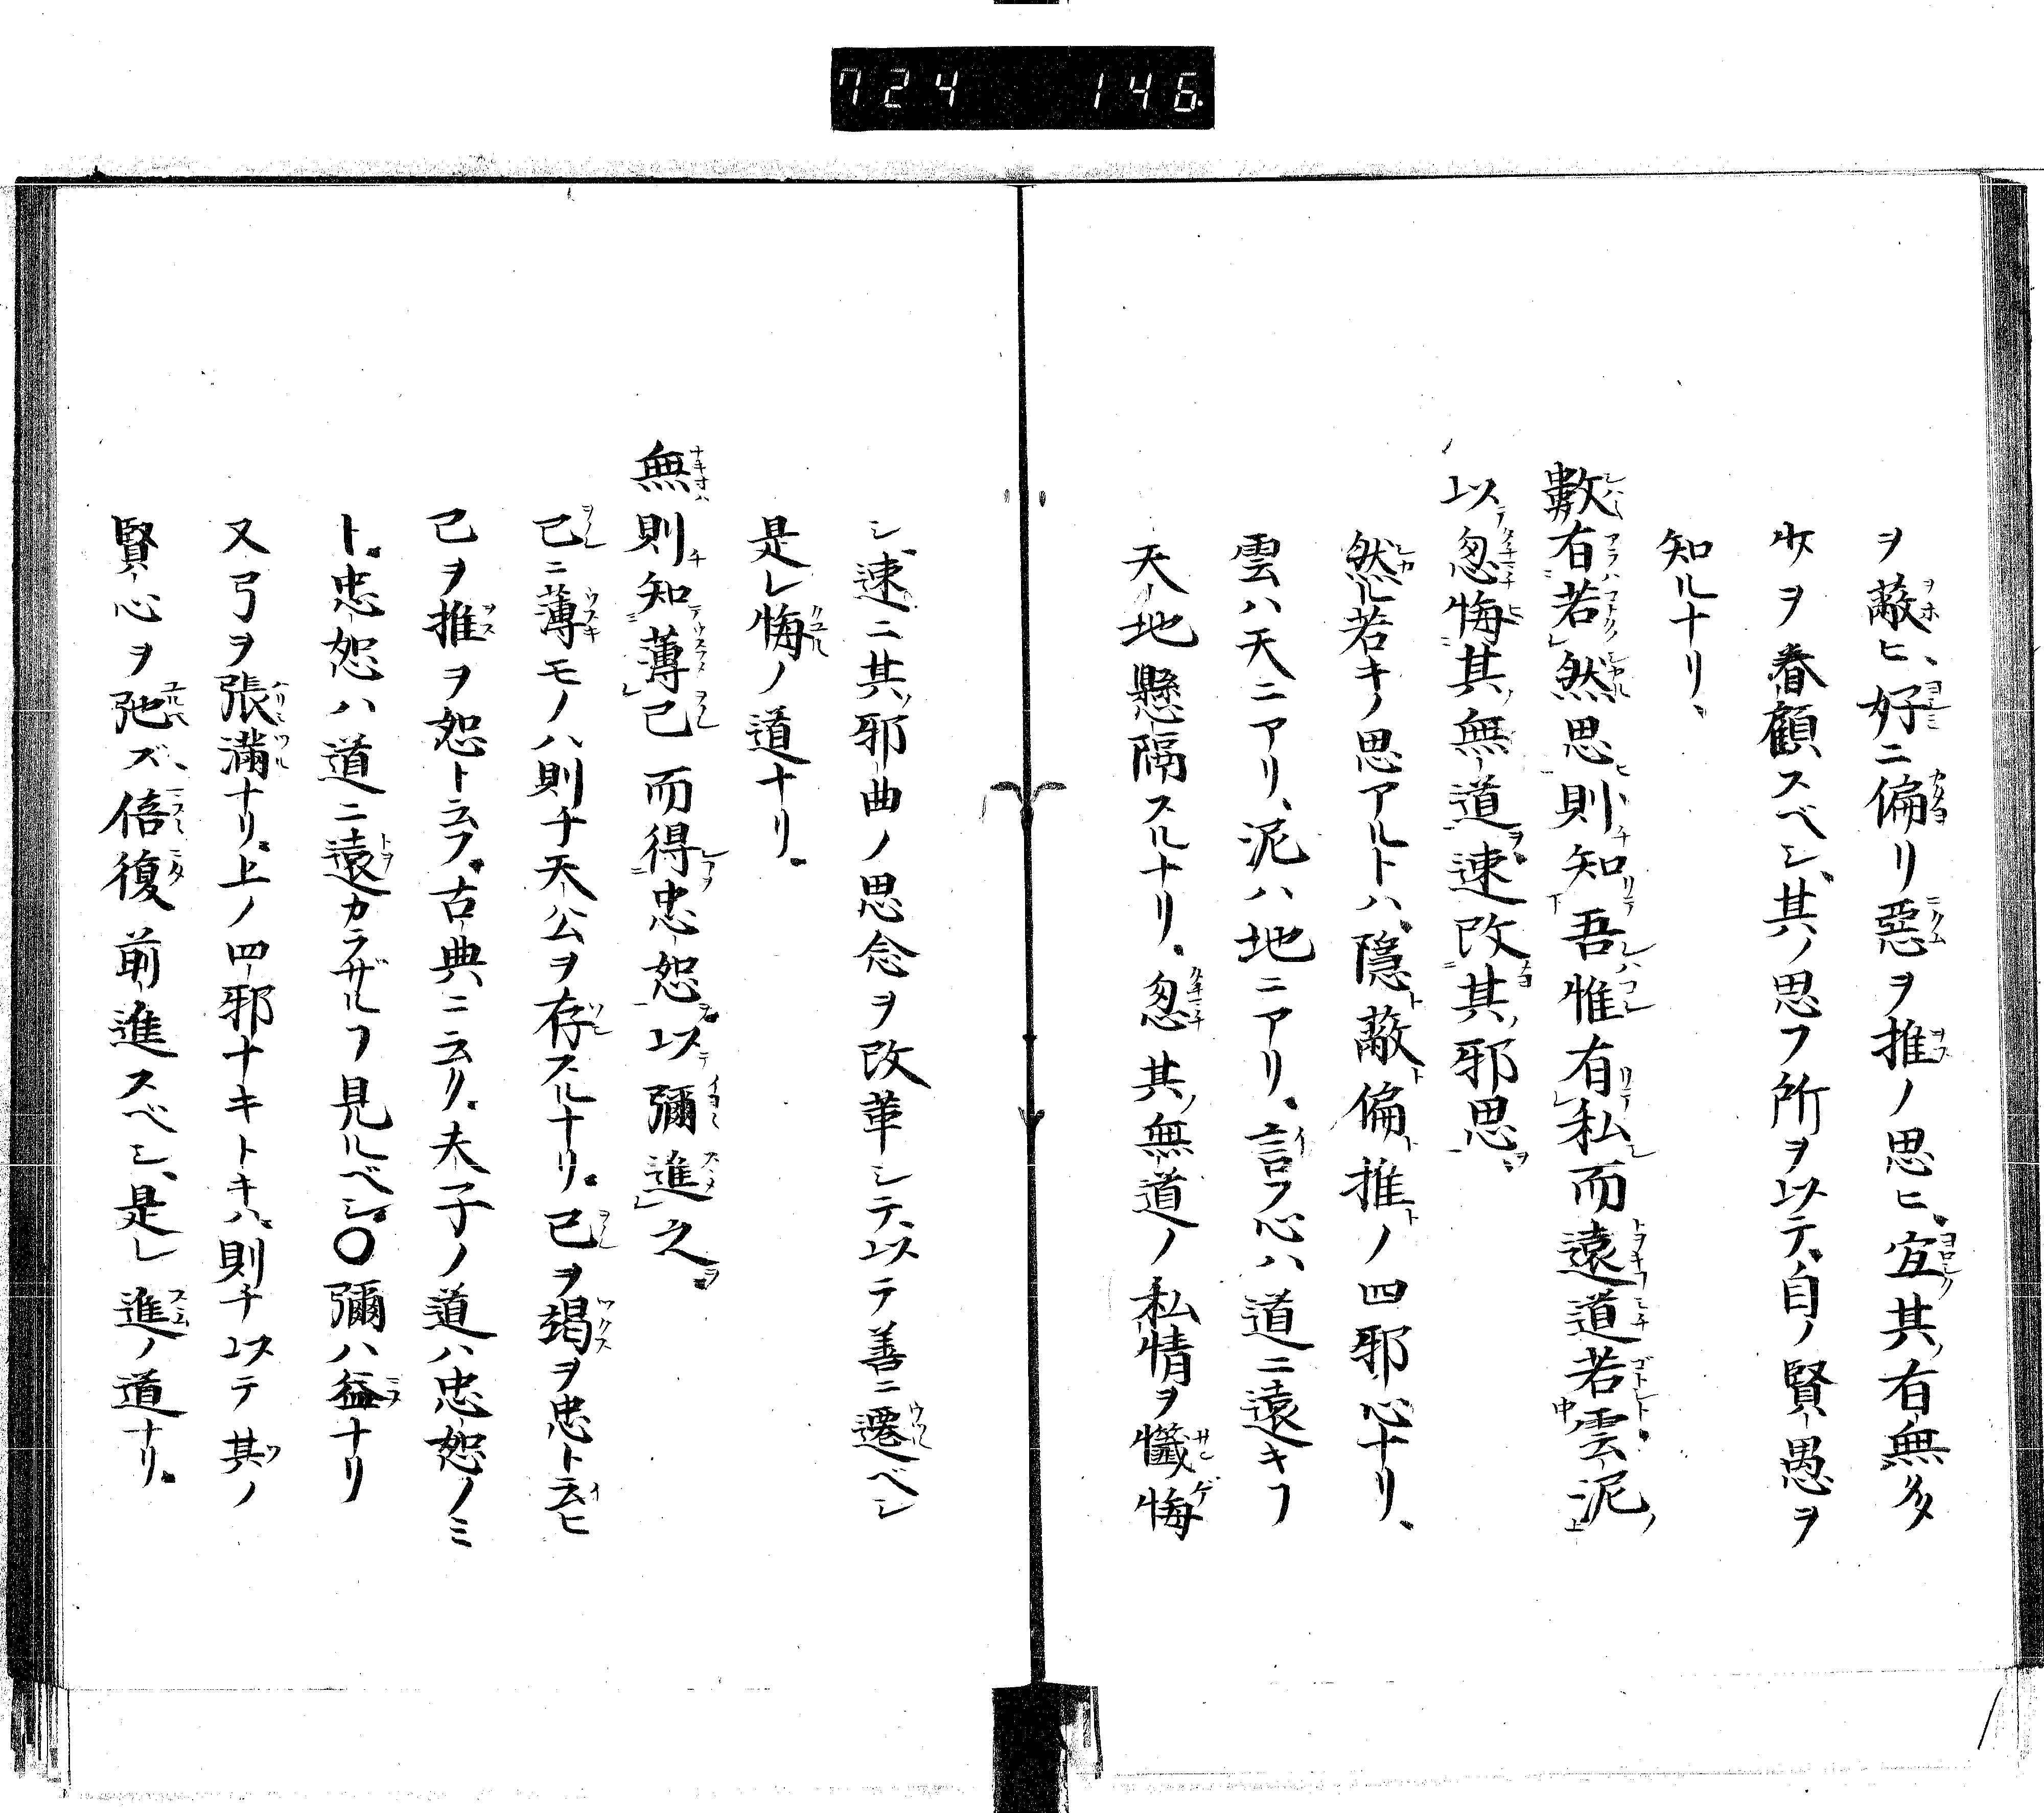 724 146
ヲ蔽ヒ、好ニ偏リ惡ヲ推ノ思ヒ、宜其ノ有無多
少ヲ眷顧スベシ、其ノ思フ所ヲ以テ、自ノ賢愚ヲ
知ルナリ、
數有若然思則知吾惟有私而遠道若雲泥
以怱悔其無道速改其邪思
然ル若キノ思アルトハ、隱ト蔽ト偏ト推トノ四邪心ナリ、
雲ハ天ニアリ、泥ハ地ニアリ、言フ心ハ道ニ遠キヿ
天地懸隔スルナリ、怱其ノ無道ノ私情ヲ懺悔
シ、速ニ其ノ邪曲ノ思念ヲ改革シテ、以テ善ニ遷ベシ
是レ悔ノ道ナリ、
無則知薄己而得忠恕以彌進之
己ニ薄モノハ、則チ天公ヲ存スルナリ、己ヲ竭ヲ忠ト云ヒ
己ヲ推ヲ恕ト云フ、古典ニ云リ、夫子ノ道ハ忠恕ノミ
ト、忠恕ハ道ニ遠カラザルヿ見ルベシ、〇彌ハ益ナリ
又弓ヲ張滿ナリ、上ノ四邪ナキトキハ、則チ以テ其ノ
賢心ヲ弛ズ、倍復前進スベシ、是レ進ノ道ナリ、